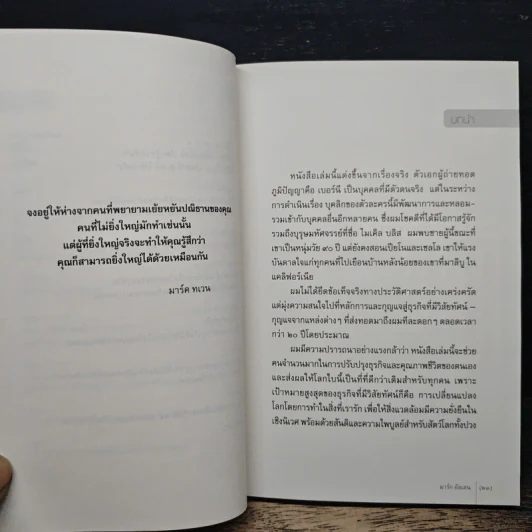 จงอยู่ให้ห่างจากคนที่พยายามเย้ยหยันปณิธานของคุณ
คนที่ไม่ยิ่งใหญ่มักทำเช่นนั้น
แต่ผู้ที่ยิ่งใหญ่จริงจะทำให้คุณรู้สึกว่า
คุณก็สามารถยิ่งใหญ่ได้ด้วยเหมือนกัน
มาร์ค ทเวน
บทนำ
หนังสือเล่มนี้แต่งขึ้นจากเรื่องจริง ตัวเอกผู้ถ่ายทอด
ภูมิปัญญาคือ เบอร์นี เป็นบุคคลที่มีตัวตนจริง แต่ในระหว่าง
การดำเนินเรื่อง บุคลิกของตัวละครนี้มีพัฒนาการและหลอม-
รวมเข้ากับบุคคลอื่นอีกหลายคน ซึ่งผมโชคดีที่ได้มีโอกาสรู้จัก
รวมถึงบุรุษมหัศจรรย์ที่ชื่อ ไมเคิล บลิส ผมพบชายผู้นี้ขณะที่
เขาเป็นหนุ่มวัย ๙๐ ปี แต่ยังคงสอนเปียโนและเชลโล เขาให้แรง
บันดาลใจแก่ทุกคนที่ไปเยือนบ้านหลังน้อยของเขาที่มาลิบู ใน
แคลิฟอร์เนีย
ผมไม่ได้ยึดข้อเท็จจริงทางประวัติศาสตร์อย่างเคร่งครัด
แต่มุ่งความสนใจไปที่หลักการและกุญแจสู่ธุรกิจที่มีวิสัยทัศน์ –
กุญแจจากแหล่งต่างๆ ที่ส่งทอดมาถึงผมทีละดอกๆ ตลอดเวลา
กว่า ๒๐ ปีโดยประมาณ
ผมมีความปรารถนาอย่างแรงกล้าว่า หนังสือเล่มนี้จะช่วย
คนจำนวนมากในการปรับปรุงธุรกิจและคุณภาพชีวิตของตนเอง
และส่งผลให้โลกใบนี้เป็นที่ที่ดีกว่าเดิมสำหรับทุกคน เพราะ
เป้าหมายสูงสุดของธุรกิจที่มีวิสัยทัศน์ก็คือ การเปลี่ยนแปลง
โลกโดยการทำในสิ่งที่เรารัก เพื่อให้สิ่งแวดล้อมมีความยั่งยืนใน
เชิงนิเวศ พร้อมด้วยสันติและความไพบูลย์สำหรับสัตว์โลกทั้งปวง
มาร์ก อัลเลน